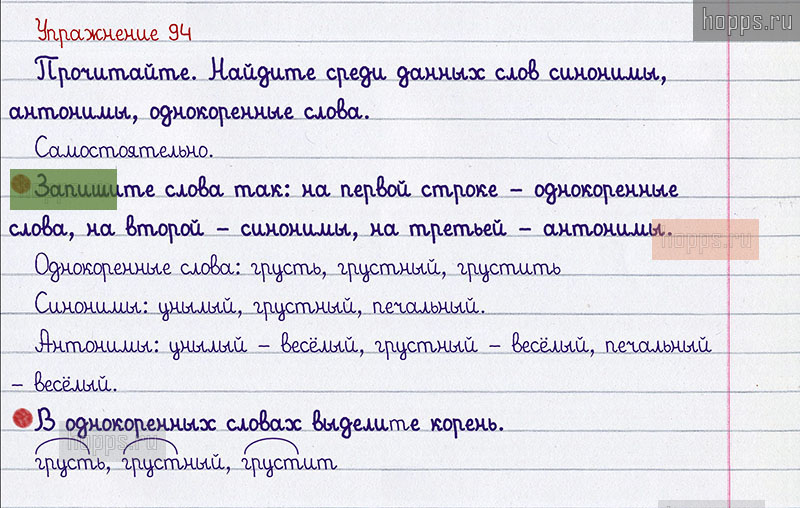 hopps.ru
Упражнение 94
Прочитайте. Найдите среди данных слов синонимы,
антонимы, однокоренные слова.
Самостоятельно.
Запишите слова так: на первой строке – однокоренные
слова, на второй – синонимы, на третьей – антонимы.
hopps.ru
Однокоренные слова: грусть, грустный, грустить
Синонимы: унылый, грустный, печальный.
Антонимы: унылый – весёлый, грустный – весёлый, печальный
– весёлый.
В однокоренных словах выделите корень.
hopps.ru
грусть, грустный, грустит